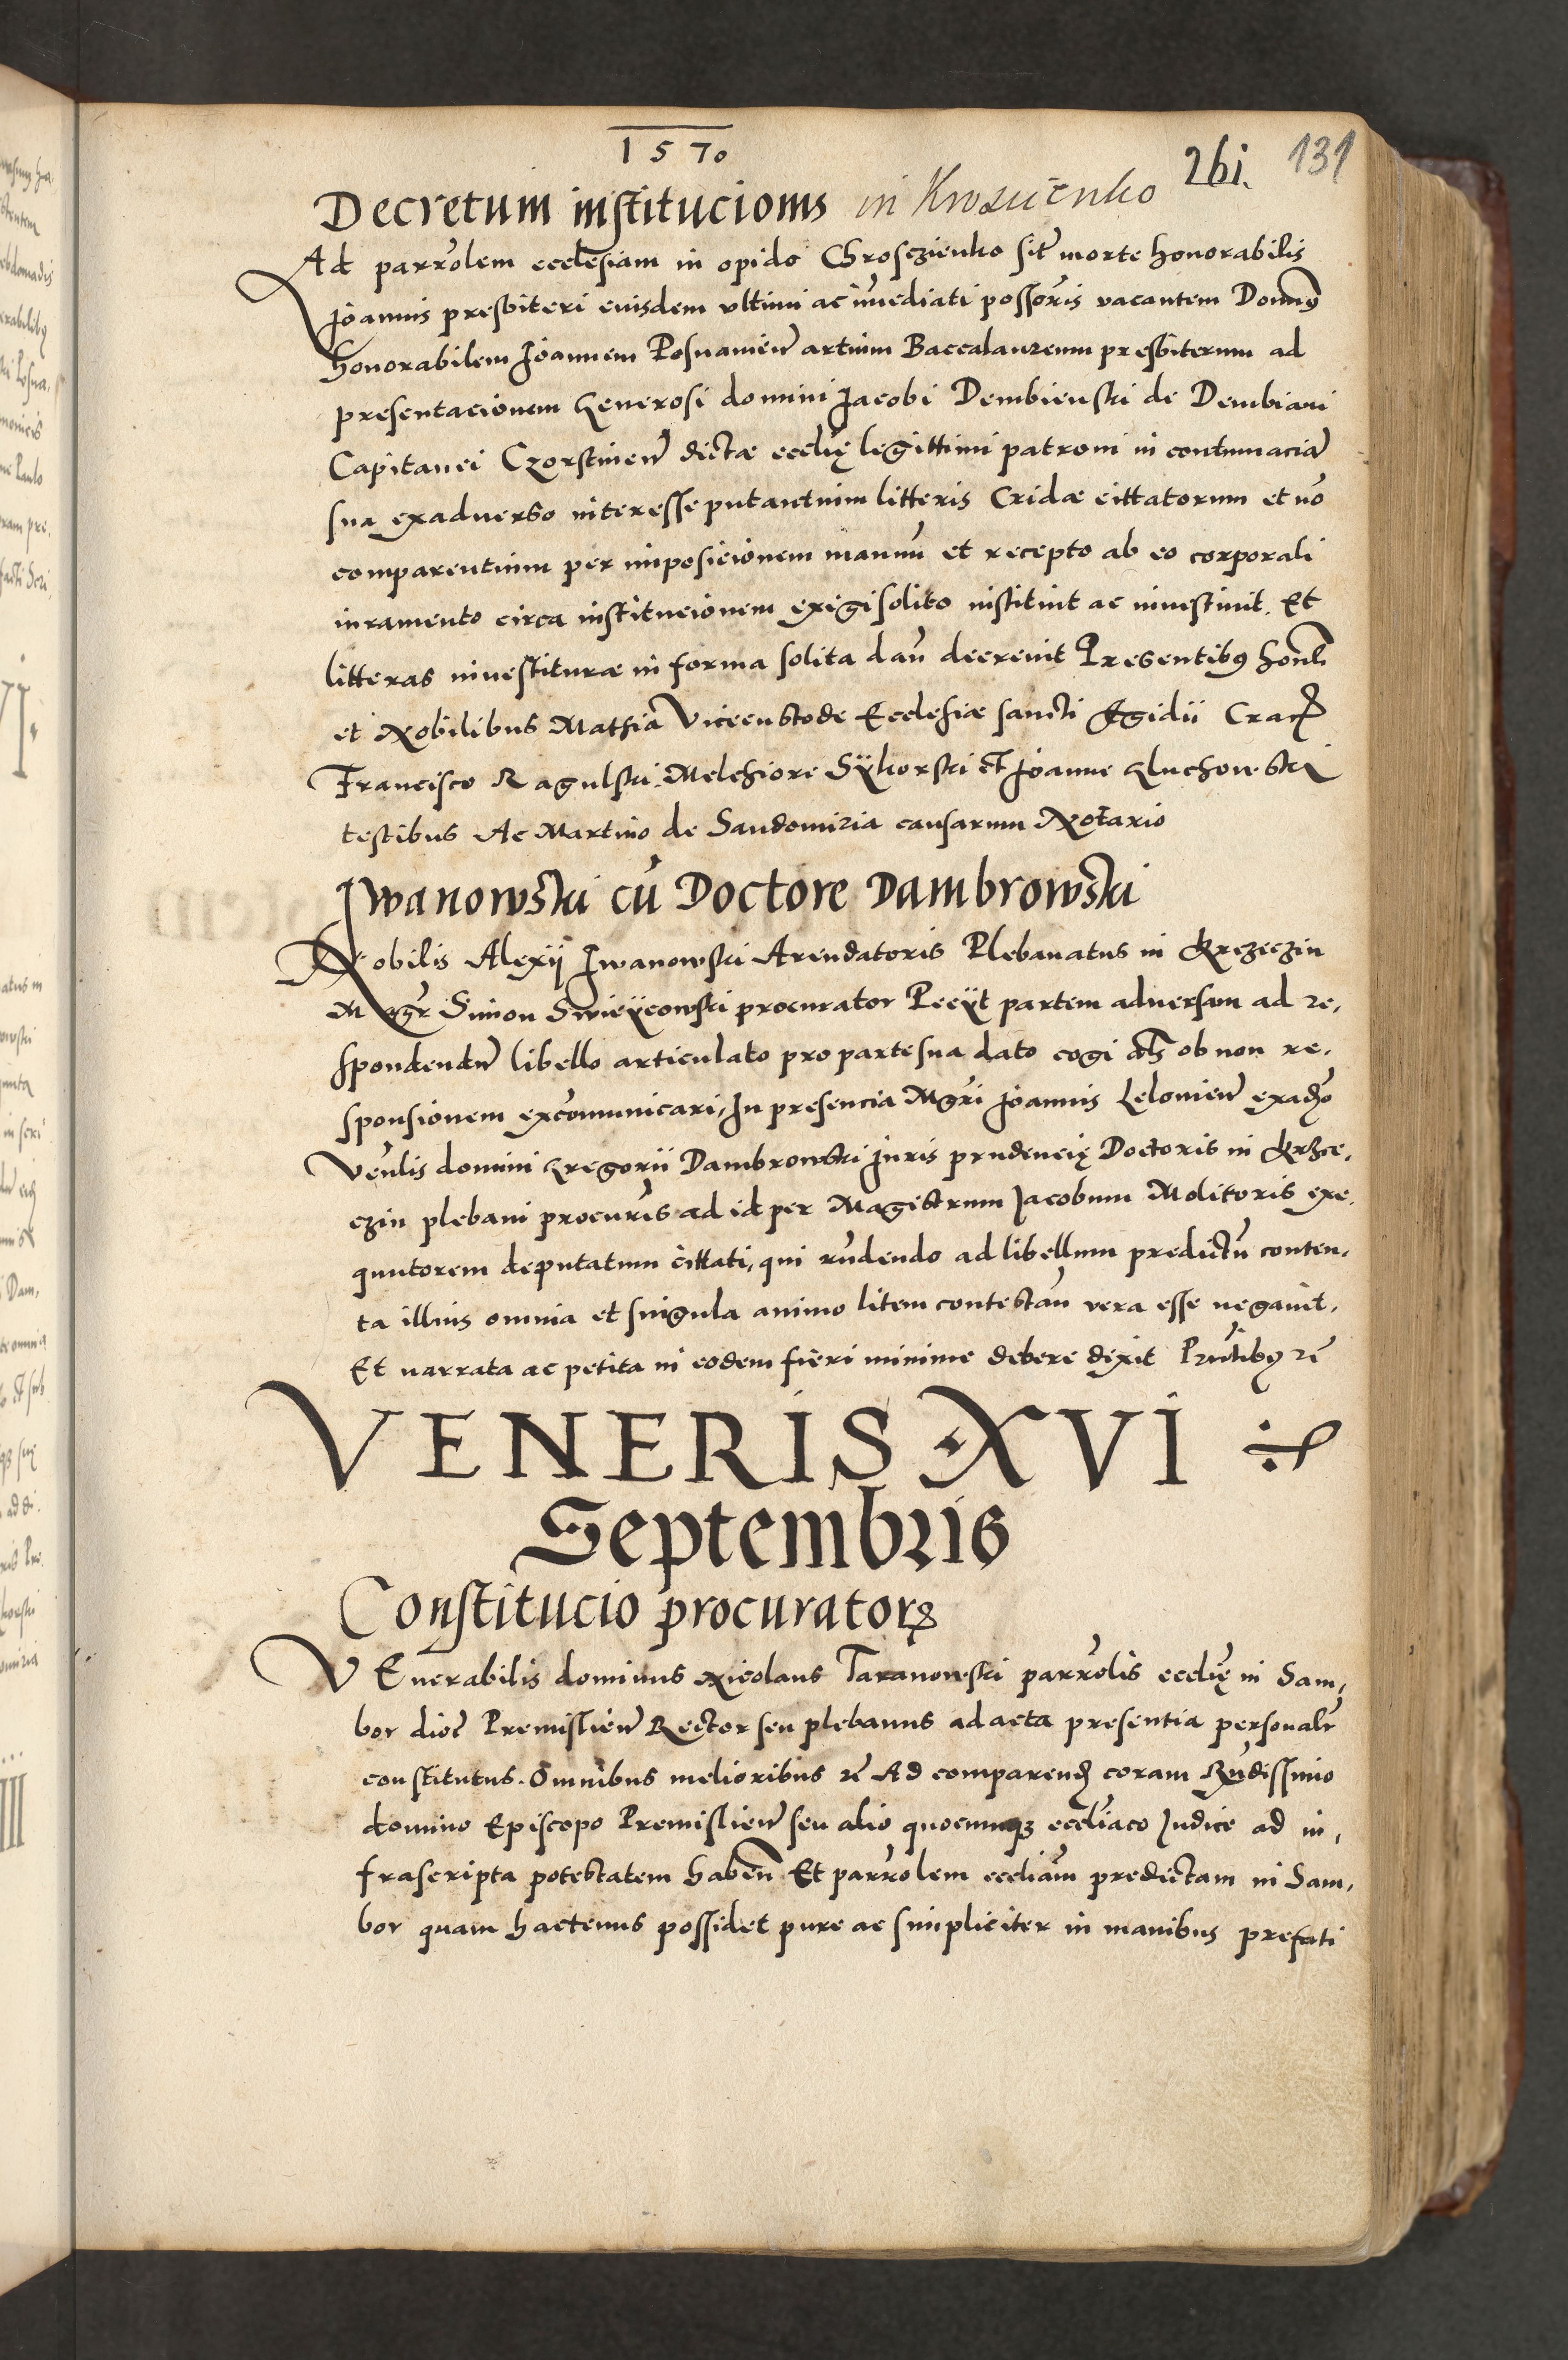 1570
261. 131
Decretum institucionis in Kroscienko
Ad parrolem ecclesiam in opido Chrosczienko sit morte honorabilis
Joannis presbiteri eiusdem ultimi ac immediati possoris vacantem Domnus
honorabilem Joannem Posnanien artium Baccalaureum presbiterum ad
presentacionem Generosi domini Jacobi Dembienski de Dembiani
Capitanei Czorstinen dictæ ecclię legittimi patroni in contumaciã
sua exaduerso interesse putantium litteris Cridæ cittatorum et nõ
comparentium per imposicionem manuũ et recepto ab eo corporali
iuramento circa institucionem exigi solito instituit ac inuestiuit. Et
litteras inuestituræ in forma solita dañ decreuit Presentibus honl
et Nobilibus Mathia Vicecustode Ecclesiæ sancti Egidii Crac
Francisco Ragulski. Melchiore Sÿkorski et Joanne Gluchowski
testibus Ac Martino de Sandomiria causarum Notario
Jwanowski cũ Doctore Dambrowski
Nobilis Alexij Jwanowski Arendatoris Plebanatus in Krzeczin
Mgr Simon Swieÿcowski procurator Peeÿt partem aduersam ad re,
spondendũ libello articulato pro parte sua dato cogi als ob non re,
sponsionem excomunicari, In presencia Mgri Joannis Lelowien exadõ
Venlis domini Gregorii Dambrowski Juris prudencię Doctoris in Krze,
czin plebani procuris ad id per Magistrum Jacobum Molitoris exe,
quutorem deputatum cittati, qui rñdendo ad libellum predictũ conten,
ta illius omnia et singula animo litem contestañ vera esse negauit,
Et narrata ac petita in eodem fieri minime debere dixit Prntibus rē
VENERIS XVI
Septembris
Constitucio procuratorꝝ
VEnerabilis dominus Nicolaus Taranowski parrolis ecclię in Sam,
bor dioc Premislien Rector seu plebanus ad acta presentia personalr
constitutus. Omnibus melioribus rē Ad comparend coram Rndissimo
domino Episcopo Premislien seu alio quocunqꝫ eccliaco Judice ad in,
frascripta potestatem haben Et parrolem eccliam predictam in Sam,
bor quam hactenus possidet pure ac simpliciter in manibus prefati